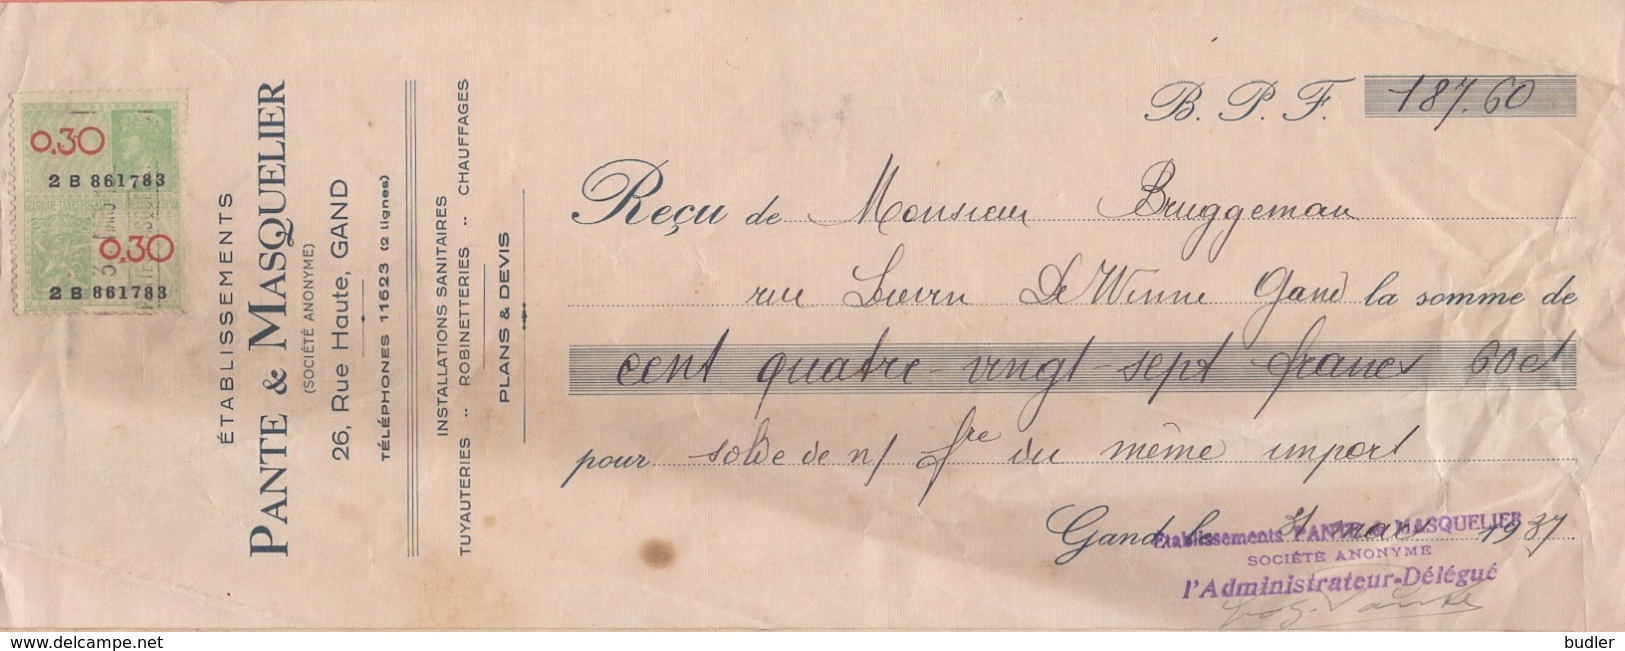 0.30
2 B 861783
0.30
2 B 861783
ÉTABLISSEMENTS
PANTE & MASQUELIER
(SOCIÉTÉ ANONYME)
26, Rue Haute, GAND
TÉLÉPHONES 11623 (2 lignes)
INSTALLATIONS SANITAIRES
TUYAUTERIES .. ROBINETTERIES .. CHAUFFAGES
PLANS & DEVIS
B. P. F. 187.60
Reçu de Monsieur Bruggeman
rue Lievin De Winne Gand la somme de
cent quatre-vingt-sept francs 60 ct
pour solde de n/ fre du même import
Gand, le 31 mars 1937.
Etablissements PANTE & MASQUELIER
SOCIÉTÉ ANONYME
l'Administrateur-Délégué
budler